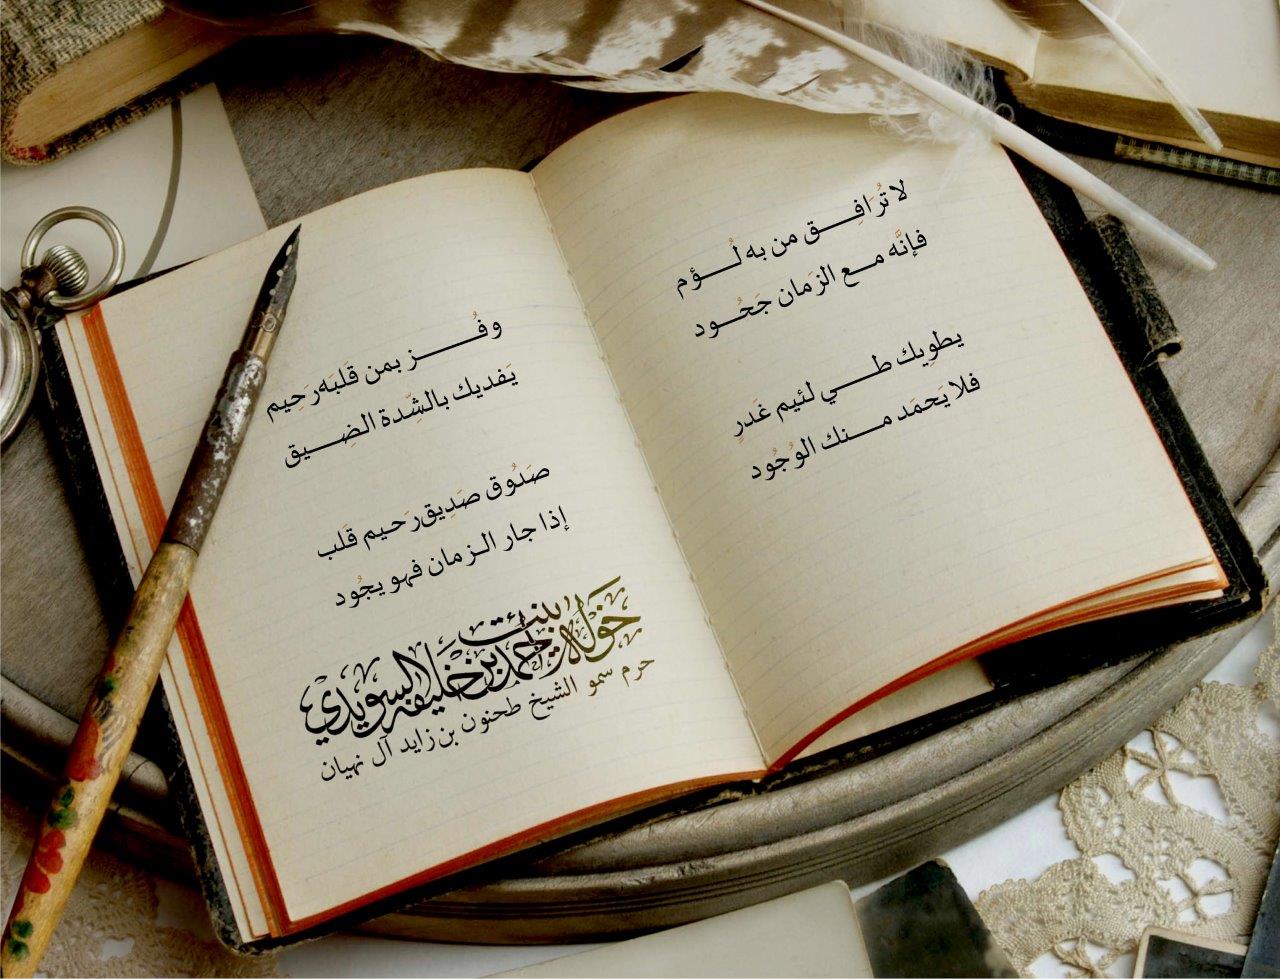 لا تُرَافِق من به لُؤم
فإنَّه مع الزَمان جَحُود
يطوِيك طي لئيم غَدرٍ
فلا يَحمَد منك الوُجُود
وفُز بمن قَلبَه رَحِيم
يَفديك بالشِّدة الضِيق
صَدُوق صَدِيق رَحيم قَلب
إذا جار الزمان فهو يجُود
خولة بنت أحمد بن خليفة السويدي
حرم سمو الشيخ طحنون بن زايد آل نهيان